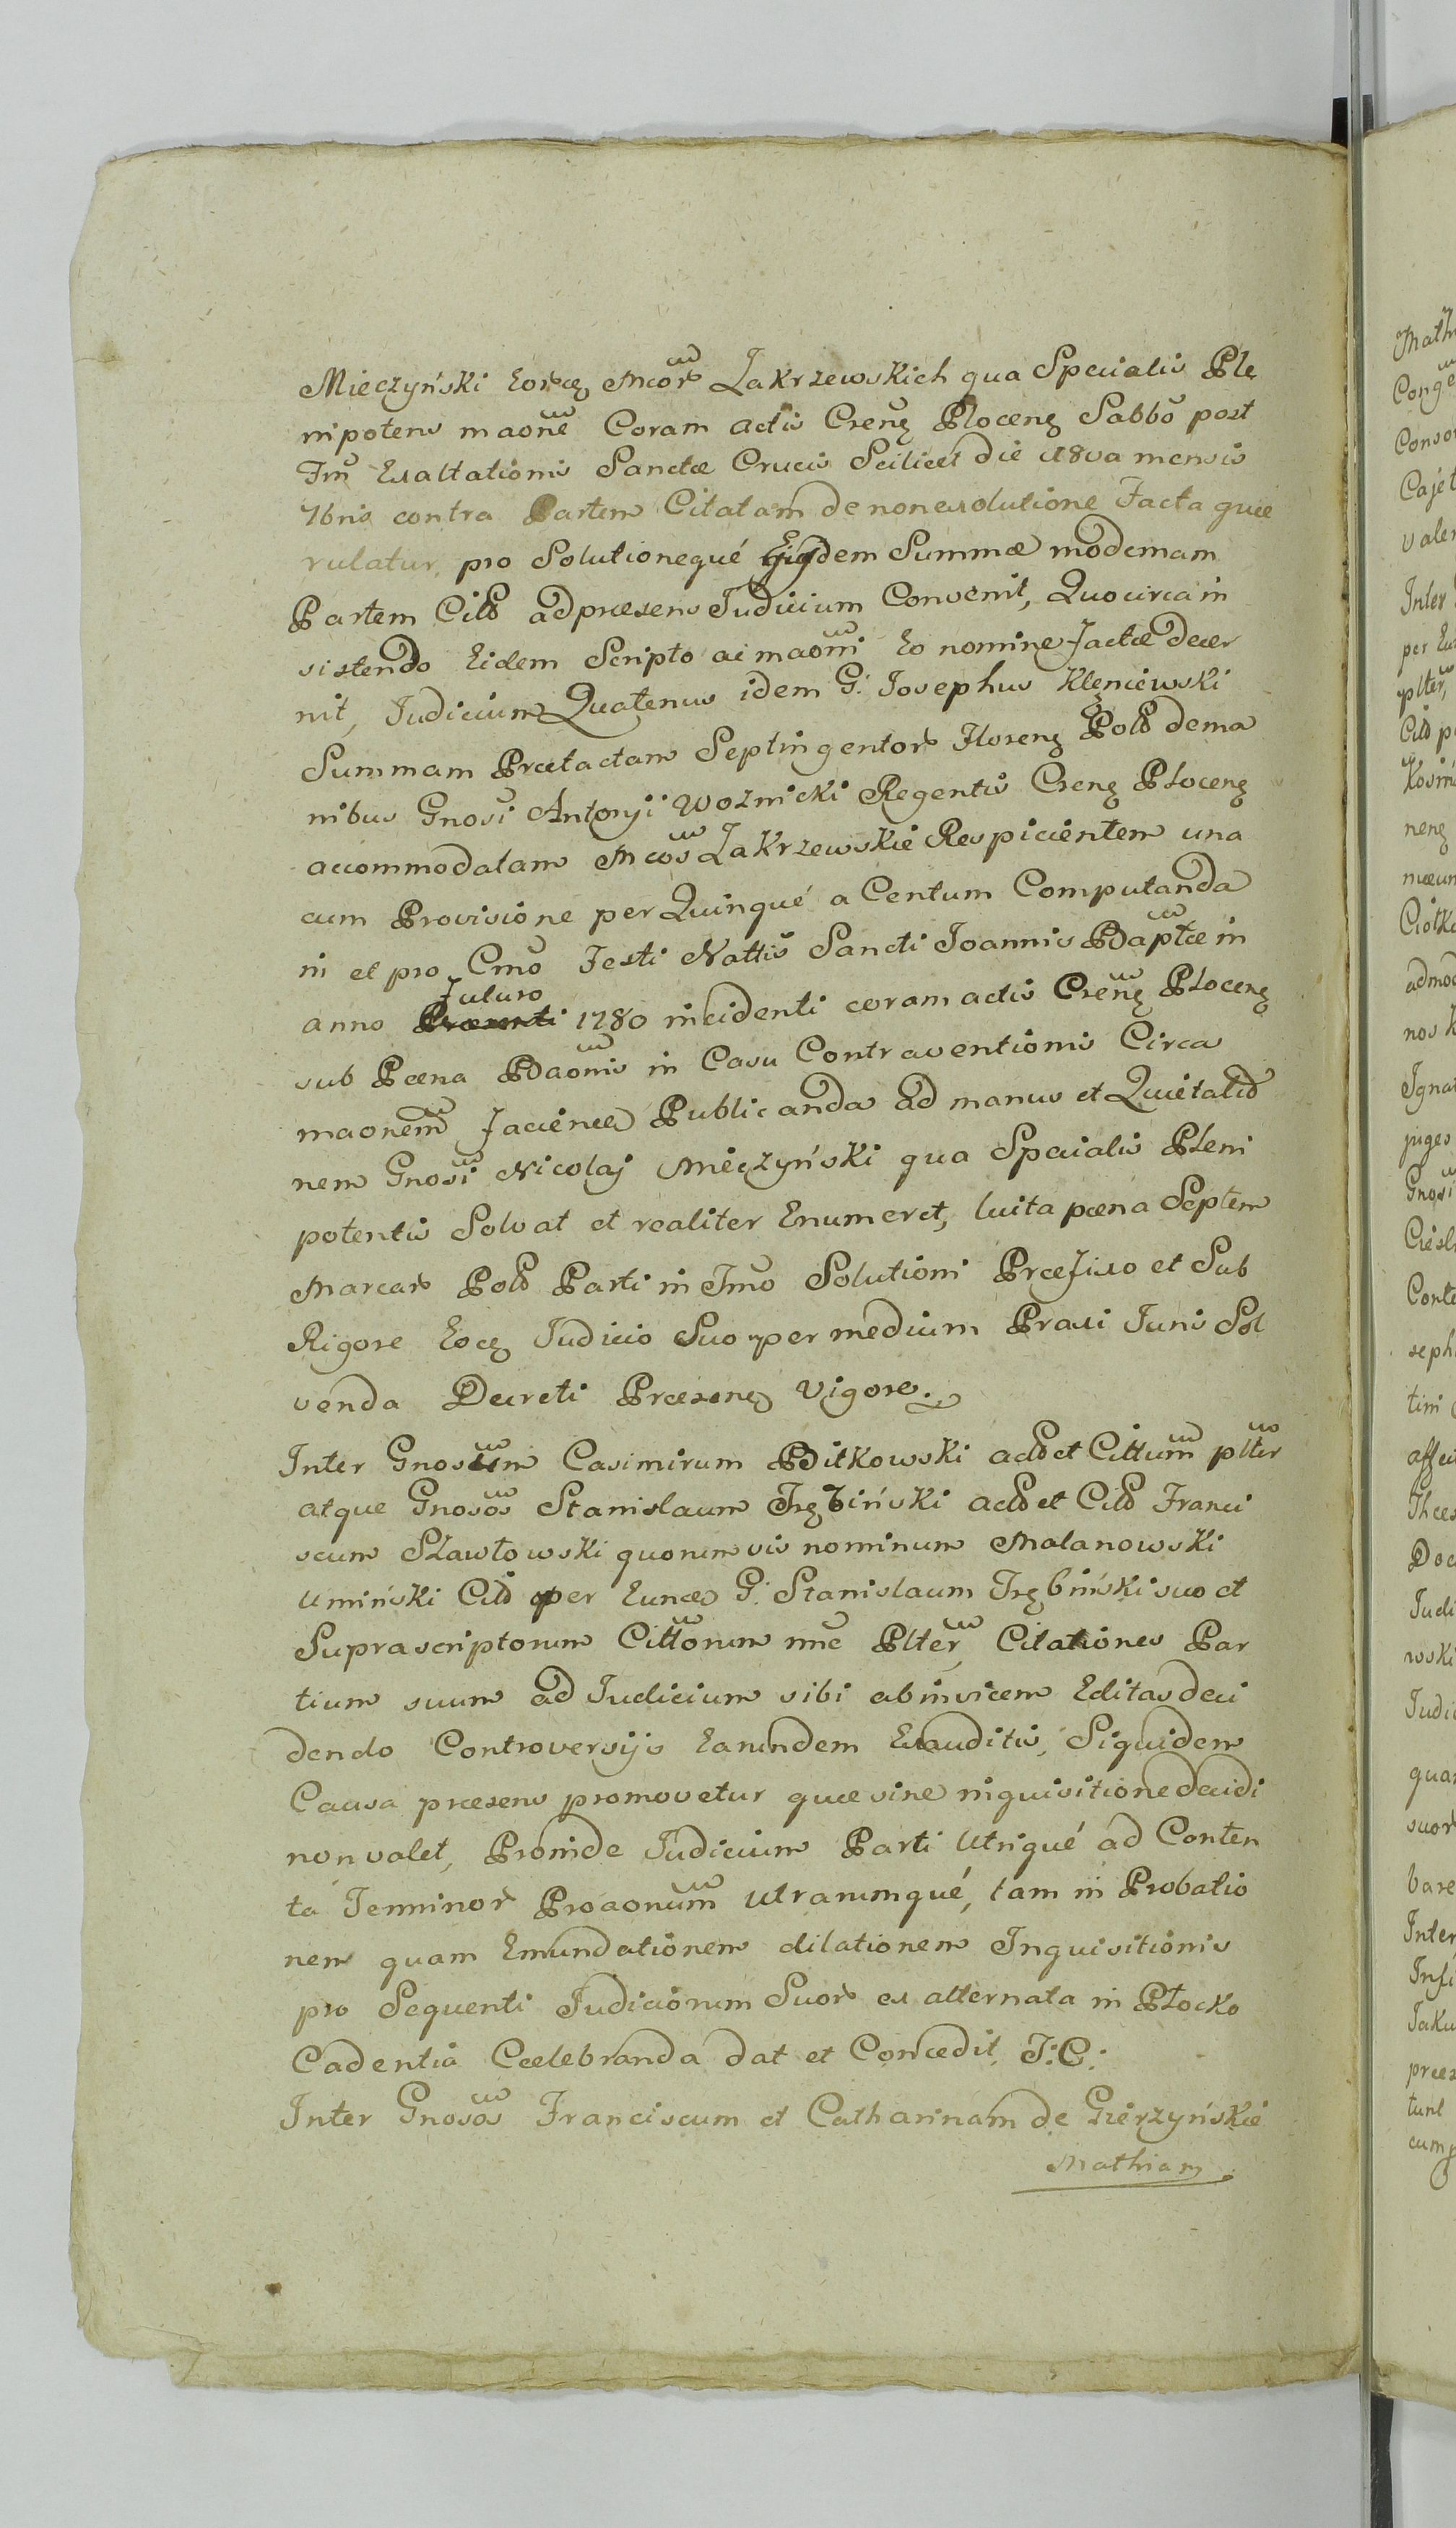 Mieczyński eorcę Mcor Zakrzewskich qua Specialis Ple
nipotens maone Coram actis Crenę Plocenę Sabbo post
Fm Exaltationis Sanctæ Crucis Scilicet die 18va mensis
7bris contra Partem Citatam de non exolutione Facta quæ
rulatur, pro Solutionequé Ejusdem Summæ modernam
Partem Citd ad præsens Judicium Convenit, Quocirca in
sistendo Eidem Scripto ac maoni Eo nomine factæ decer
nit, Judicium Quatenus idem G. Josephus Kleniewski
Summam Prætactam Septingentor Florenę Pold de ma
nibus Gnosi Antonji Woznicki Regentis Crenę Plocenę
accommodatam Mcos Zakrzewskie Respicientem una
cum Provisione per Quinqué a Centum Computanda
in et pro Cmo Festi Nattis Sancti Joannis Baptæ in
Futuro
anno Præsenti 1780 incidenti coram actis Crenę Plocenę
sub Pœna Baonis in Casu Contraventionis Circa
maonem faciende Publicanda ad manus et Quietatio
nem Gnosi Nicolaj Mieczyński qua Specialis Pleni
potentis Solvat et realiter Enumeret, luita pœna Septem
Marcar Pold Parti in Fmo Solutioni Præfixo et Sub
Rigore Eocę Judicio Suo per medium Praxi Juris Sol
venda Decreti Præsenę Vigore.
Inter Gnosum Casimirum Bitkowski actd et Cittum plter
atque Gnosos Stanislaum Trębiński actd et Citd Franci
scum Sławłowski quorumvis nominum Malanowski
Umiński Citd per Eunce G. Stanislaum Trębiński suo et
Suprascriptorum Cittorum nne Plter, Citationes Par
tium suum ad Judicium sibi abinvicem Editas deci
dendo Controversijs Earundem Exauditis, Siquidem
Causa præsens promovetur quæ sine inquisitione decidi
non valet, Proinde Judicium Parti Utriqué ad Conten
ta Terminor Proaonum Utrarumqué, tam in Probatio
nem quam Emundationem dilationem Inquisitionis
pro Sequenti Judiciorum Suor ex alternata in Płocko
Cadentia Cælebranda dat et Concedit. T: C:
Inter Gnosos Franciscum et Catharinam de Gierzyńskie
Mathiam